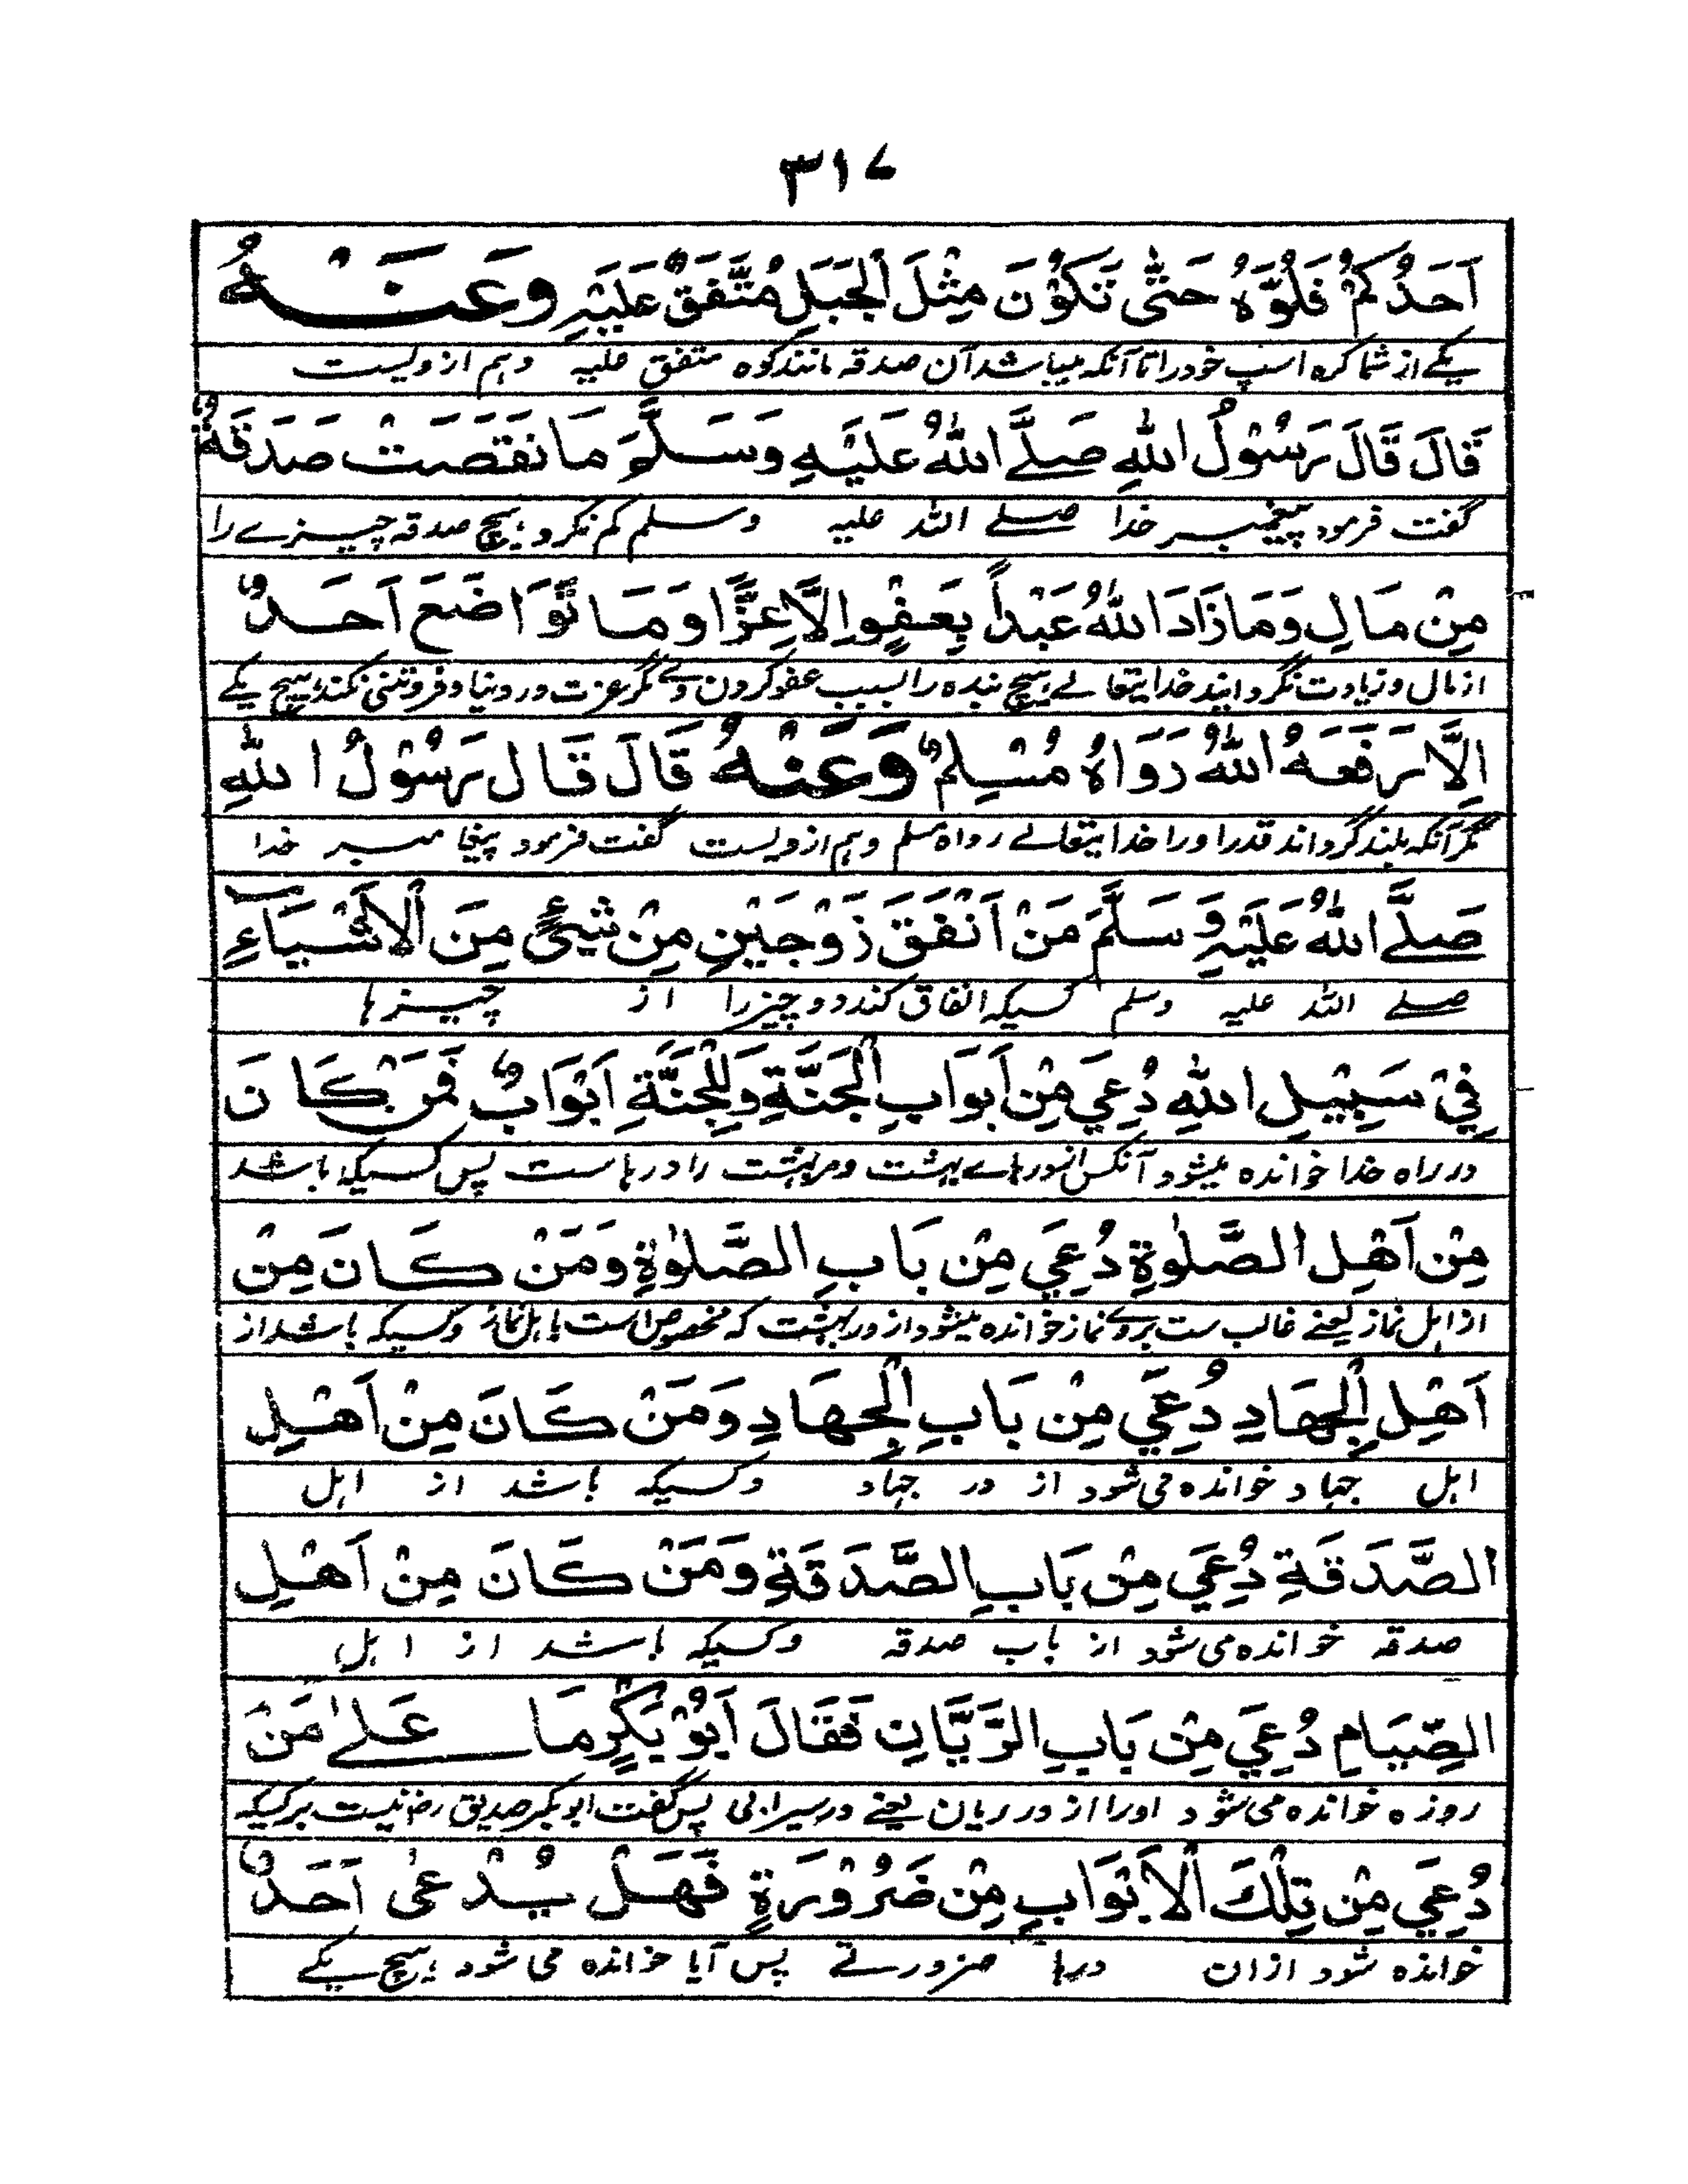 ۳۱۷
اَحَدُكُمْ فَلُوَّهُ حَتّٰى تَكُوْنَ مِثْلَ الْجَبَلِ مُتَّفَقٌ عَلَيْهِ وَعَنْهُ
یکے از شما کره اسپ خود را تا آنکه میباشد آن صدقہ مانند کوه متفق علیہ وہم از ولیست
قَالَ قَالَ رَسُوْلُ اللّٰهِ صَلَّے اللّٰهُ عَلَيْهِ وَسَلَّمَ مَا نَقَصَتْ صَدَقَةٌ
گفت فرمود پیغمبر خدا صلے اللہ علیہ وسلم کم نکرد ہیچ صدقہ چیزے را
مِنْ مَالٍ وَمَا زَادَ اللّٰهُ عَبْداً بِعَفْوٍ اِلَّا عِزًّا وَمَا تَوَاضَعَ اَحَدٌ
از مال و زیادت نگردانید خدایتعالے ہیچ بنده را بسبب عفو کردن وے مگر عزت در دنیا و فروتنی نکند ہیچ یکے
اِلَّا رَفَعَهُ اللّٰهُ رَوَاهُ مُسْلِمٌ وَعَنْهُ قَالَ قَالَ رَسُوْلُ اللّٰهِ
مگر آنکہ بلند گرداند قدر او را خدایتعالے رواه مسلم وہم از ولیست گفت فرمود پیغامبر خدا
صَلَّے اللّٰهُ عَلَيْهِ وَسَلَّمَ مَنْ اَنْفَقَ زَوْجَيْنِ مِنْ شَيْءٍ مِنَ الْاَشْيَاءِ
صلے اللہ علیہ وسلم کسیکہ انفاق کند دو چیز را از چیزہا
فِيْ سَبِيْلِ اللّٰهِ دُعِيَ مِنْ اَبْوَابِ الْجَنَّةِ وَلِلْجَنَّةِ اَبْوَابٌ فَمَنْ كَانَ
در راه خدا خوانده میشود آنکس از درہاے بہشت و مر بہشت را درہاست پس کسیکہ باشد
مِنْ اَهْلِ الصَّلٰوةِ دُعِيَ مِنْ بَابِ الصَّلٰوةِ وَمَنْ كَانَ مِنْ
از اہل نماز یعنے غالب ست بروے نماز خوانده میشود از در بہشت کہ مخصوص است باہل نماز وکسیکہ باشد از
اَهْلِ الْجِهَادِ دُعِيَ مِنْ بَابِ الْجِهَادِ وَمَنْ كَانَ مِنْ اَهْلِ
اہل جہاد خوانده می شود از در جہاد وکسیکہ باشد از اہل
الصَّدَقَةِ دُعِيَ مِنْ بَابِ الصَّدَقَةِ وَمَنْ كَانَ مِنْ اَهْلِ
صدقہ خوانده می شود از باب صدقہ وکسیکہ باشد از اہل
الصِّيَامِ دُعِيَ مِنْ بَابِ الرَّيَّانِ فَقَالَ اَبُوْ بَكْرٍ مَا عَلٰے مَنْ
روزه خوانده می شود او را از در ریان یعنے در سیرابی پس گفت ابو بکر صدیق رض نیست بر کسیکہ
دُعِيَ مِنْ تِلْكَ الْاَبْوَابِ مِنْ ضَرُوْرَةٍ فَهَلْ يُدْعٰى اَحَدٌ
خوانده شود از ان درہا ضرورتے پس آیا خوانده می شود ہیچ یکے